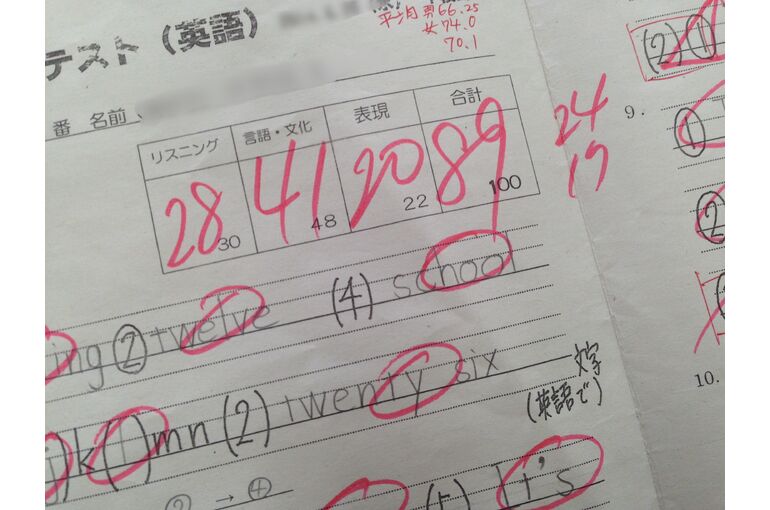 テスト(英語)
平均 男66.25
女74.0
70.1
番 名前
リスニング 言語・文化 表現 合計
28 41 20 89
30 48 22 100
24
17
(2) ①
9.
①
②
10.
ing ② twelve (4) school
j) k (l) mn (2) twenty six
文字
(英語で)
② → ④
(5) It's